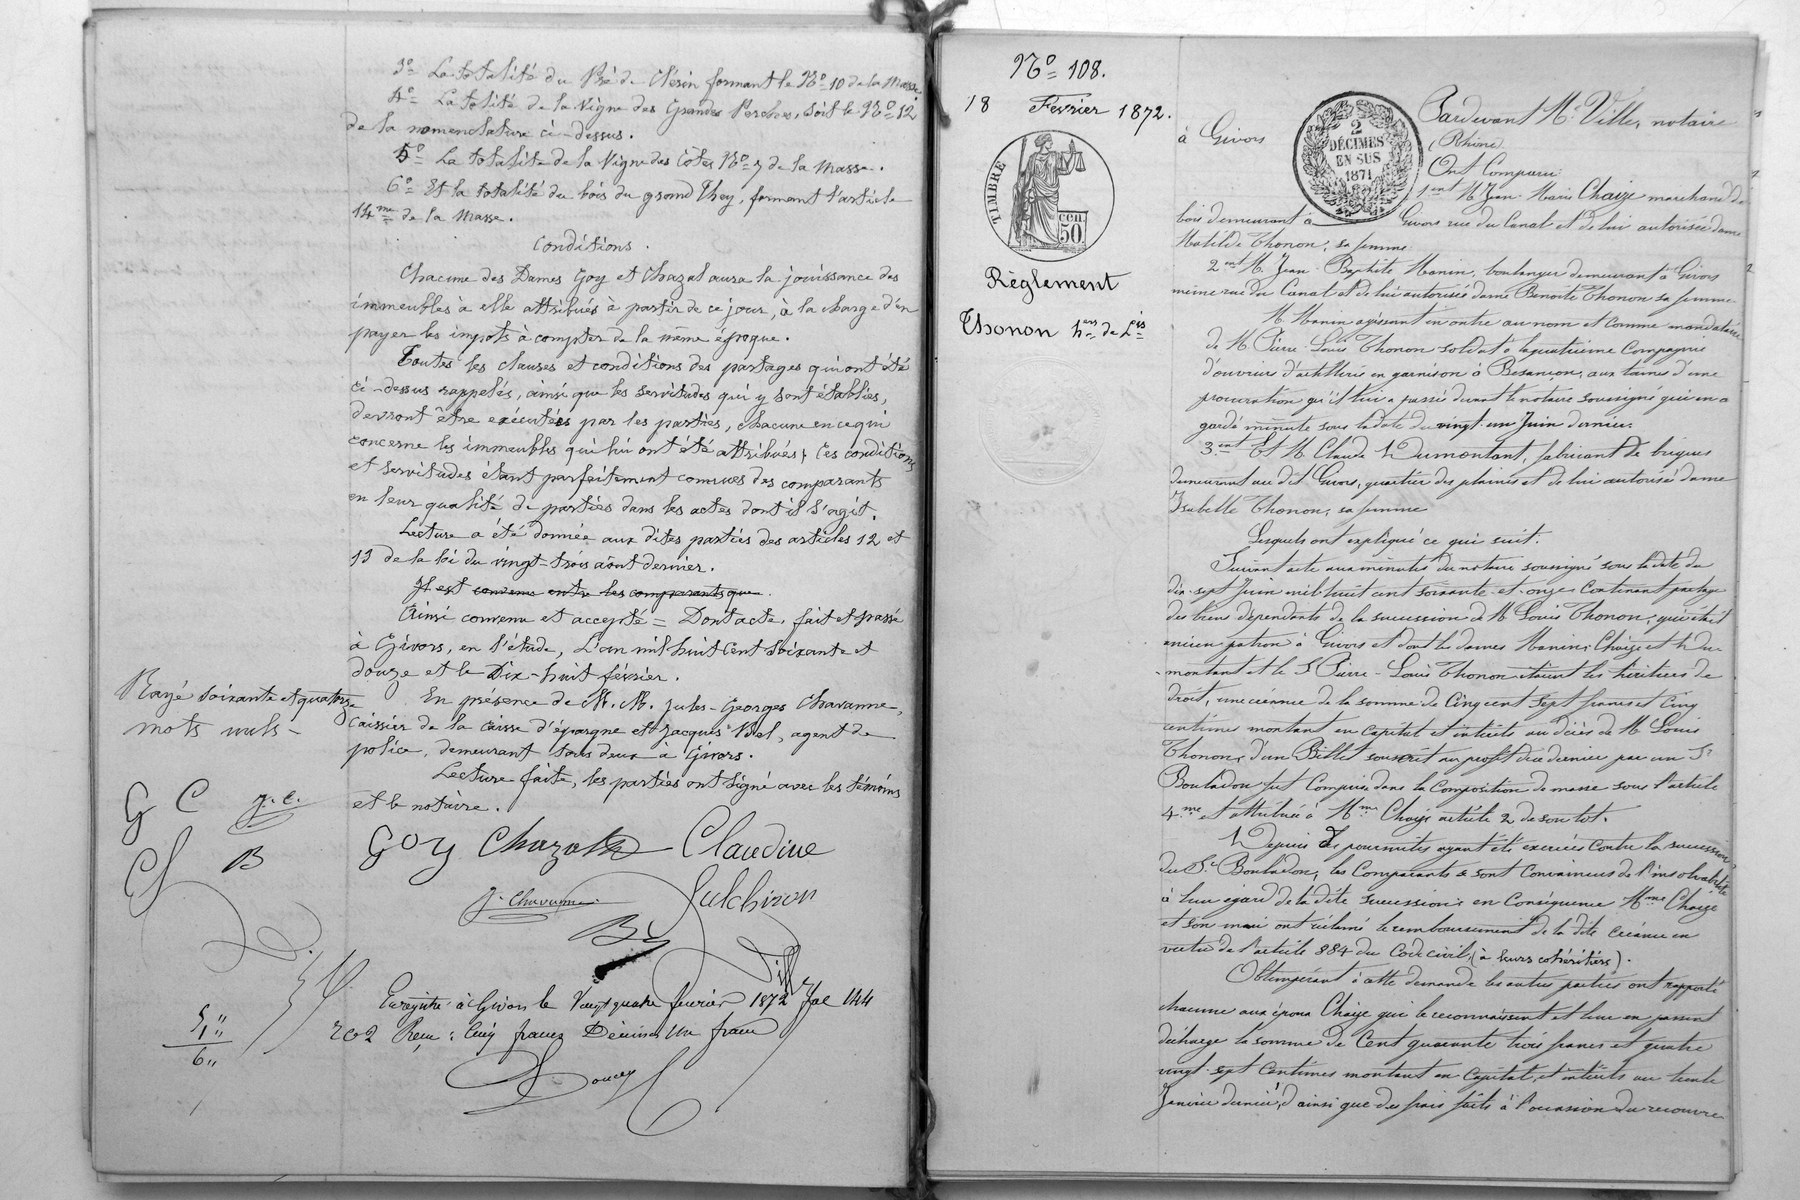 3º La totalité du Pré de Clérin formant le Nº 10 de la Masse.
4º La tolité de la Vigne des Grandes Perches, soit le Nº 12
de la nomenclature ci-dessus.
5º La totalité de la Vigne des Côtes Nº 7 de la Masse.
6º Et la totalité du bois du grand They, formant l'article
14me de la Masse.
Conditions.
Chacune des Dames Goy et Chazal aura la jouissance des
immeubles à elle attribués à partir de ce jour, à la charge d'en
payer les impots à compter de la même époque.
Toutes les clauses et conditions des partages qui ont été
ci-dessus rappelés, ainsi que les servitudes qui y sont établies,
devront être exécutées par les parties, chacune en ce qui
concerne les immeubles qui lui ont été attribués, ces conditions
et servitudes étant parfaitement connues des comparants
en leur qualité de parties dans les actes dont il s'agit.
Lecture a été donnée aux dites parties des articles 12 et
13 de la loi du vingt-trois août dernier.
Il est convenu entre les comparants que
Ainsi convenu et accepté = Dont acte, fait et passé
à Givors, en l'étude, L'an mil huit cent soixante et
douze et le Dix-huit février.
En présence de M.M. Jules-Georges Chavanne,
caissier de la caisse d'épargne et Jacques Bel, agent de
police, demeurant tous deux à Givors.
Lecture faite, les parties ont signé avec les témoins
et le notaire.
Rayé soixante et quatorze
mots nuls -
G C J. C.
B
Goy Chazal Claudine
J. Chavanne Julchiron
Ville
Enregistré à Givors le Vingt quatre février 1872 fol 144
Rco 2 Reçu: Cinq francs Décimes Un franc
Doucey
5,,
1,,
6,,
Nº 108.
18 Fevrier 1872.
TIMBRE
50 cen
Règlement
Thonon hers de Lis
2
DÉCIMES
EN SUS
1871
Pardevant Me Ville, notaire
à Givors (Rhône)
Ont Comparu:
1ent M. Jean Marie Chaize marchand de
bois demeurant à Givors rue du Canal et de lui autorisée dame
Matilde Thonon, sa femme
2ent M. Jean Baptiste Manin, boulanger demeurant à Givors
même rue du Canal et de lui autorisée dame Benoite Thonon sa femme
M. Manin agissant en outre au nom et comme mandataire
de M. Pierre Louis Thonon soldat à la quatrième Compagnie
d'ouvriers d'artillerie en garnison à Besançon, aux termes d'une
procuration qu'il lui a passée devant le notaire soussigné qui en a
gardé minute sous la date du vingt-un Juin dernier.
3ent Et M. Claude Dumontant, fabricant de briques
demeurant au dit Givors, quartier des plaines et de lui autorisée dame
Isabelle Thonon, sa femme
Lesquels ont expliqué ce qui suit.
Suivant acte aux minutes du notaire soussigné sous la date du
dix-sept Juin mil huit cent soixante-et-onze Contenant partage
des biens dépendants de la succession de M. Louis Thonon, qui était
ancien patron à Givors et dont les dames Manin, Chaize et Du-
montant et le Sr Pierre-Louis Thonon étaient les héritiers de
droit, une créance de la somme de Cinq cent sept francs et Cinq
centimes montant en capital et intérêts au décès de M. Louis
Thonon, d'un Billet souscrit au profit de ce dernier par un Sr
Bouladon fut Comprise dans la Composition de masse sous l'article
4me et attribuée à Mme Chaize article 2 de son lot.
Depuis des poursuites ayant été exercées Contre la succession
du Sr Bouladon, les Comparants se sont Convaincus de l'insolvabilité
à leur égard de la dite succession; en Conséquence Mme Chaize
et son mari ont réclamé le remboursement de la dite créance en
vertu de l'article 884 du Code civil, (à leurs cohéritiers).
Obtempérant à cette demande les autres parties ont rapporté
chacune aux époux Chaize qui le reconnaissent et leur en passent
décharge la somme de Cent quarante trois francs et quatre
vingt-sept Centimes montant en Capital, et intérêts au trente
Janvier dernier, d'ainsi que des frais faits à l'occasion du recouvre